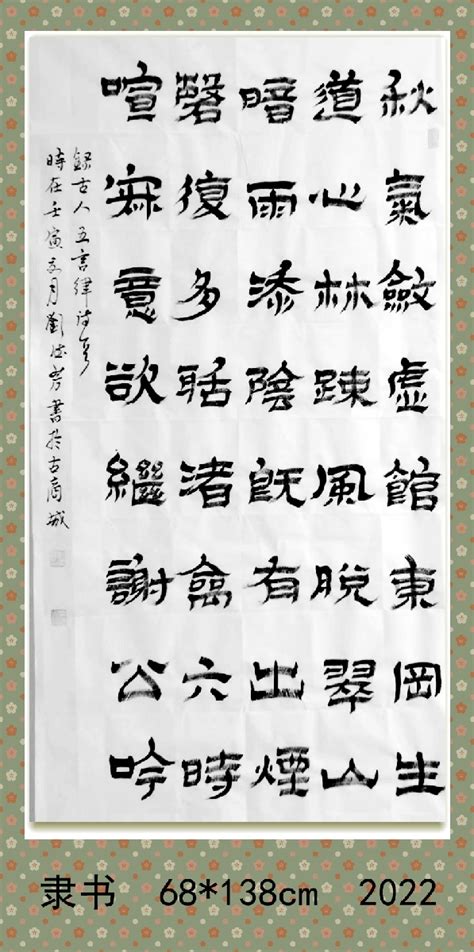 秋氣斂虛館東岡生
道心林踈風脫翠山
暗雨添陰既有出煙
磬復多聒渚禽六時
喧寐意欲繼謝公吟
錄古人五言律詩
時在壬寅月劉書於古商城
隶书 68*138cm 2022